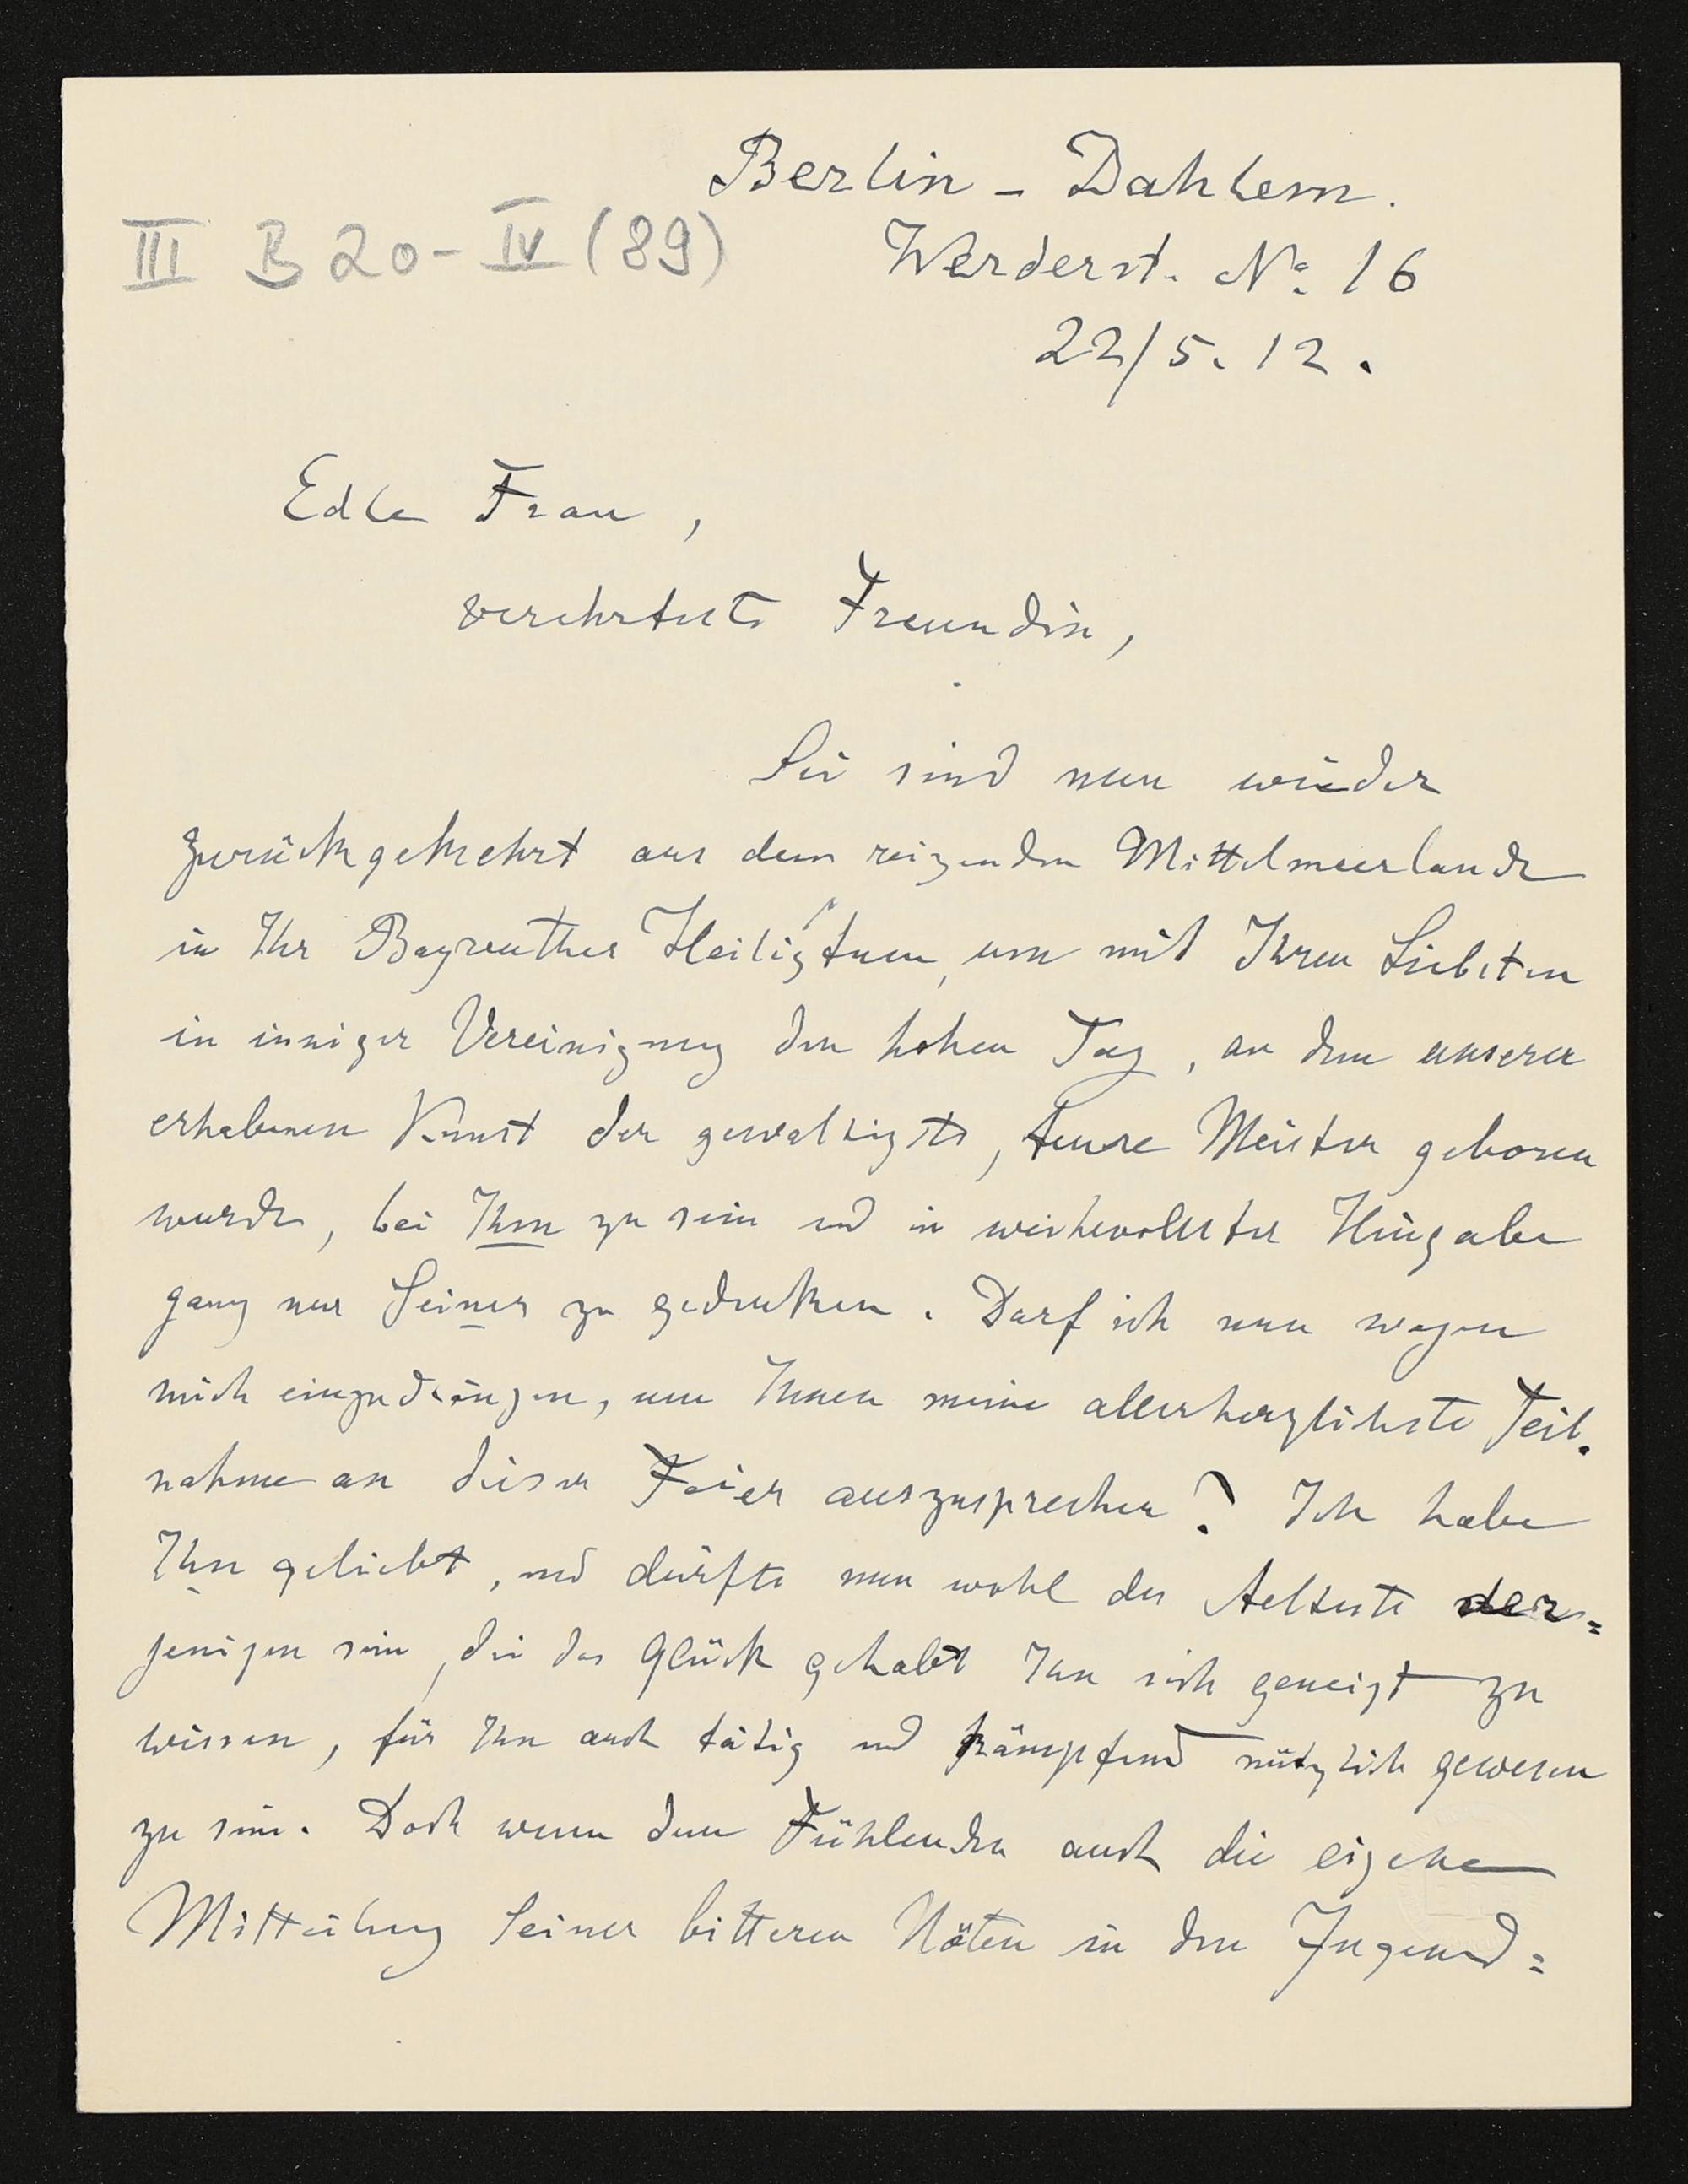 Berlin – Dahlem.
III B 20 – IV (89)
Werderst. No: 16
22/5. 12.
Edle Frau,
verehrteste Freundin,
Sie sind nun wieder
zurückgekehrt aus dem reizenden Mittelmeerlande
in Ihr Bayreuther Heiligtum, um mit Ihren Liebsten
in inniger Vereinigung den hohen Tag, an dem unserer
erhabenen Kunst der gewaltigste, teure Meister geboren
wurde, bei Ihm zu sein und in weihevollster Hingabe
ganz nur Seiner zu gedenken. Darf ich nun wagen
mich einzudrängen, um Ihnen meine allerherzlichste Teil-
nahme an dieser Feier auszusprechen? Ich habe
Ihn geliebt, und dürfte nun wohl der Aelteste der=
jenigen sein, die das Glück gehabt Ihn sich geneigt zu
wissen, für Ihn auch tätig und kämpfend nützlich gewesen
zu sein. Doch wenn dem Fühlenden auch die eigene
Mitteilung Seiner bitteren Nöten in den Jugend=